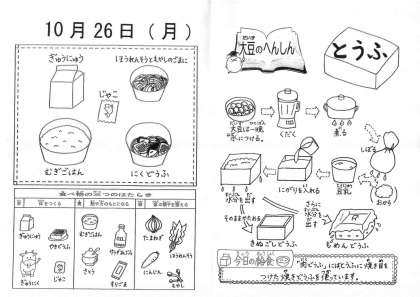 10月26日(月)
ぎゅうにゅう
ほうれんそうともやしのごまに
じゃこ
むぎごはん
にくどうふ
食べ物の三つのはたらき
ぎゅうにゅう
じゃこ
ぎゅうにく
むぎごはん
さとう
すりごま
たまねぎ
にんじん
ほうれんそう
もやし
だいず
大豆のへんしん
とうふ
大豆は一晩
水につける。
くだく
煮る
しぼる
おから
豆乳
にがりを入れる
水分を
出す
そのままかためる
さらに
水分を
出す
きぬごしどうふ
もめんどうふ
今日の給食
「肉どうふ」にはとうふに焼き目を
つけた焼きどうふを使っています。